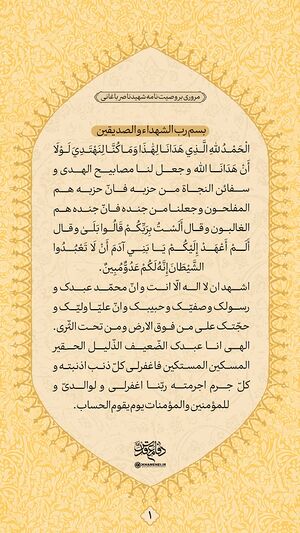 مروری بر وصیت‌نامه شهید ناصر باغانی
بسم رب الشهداء و الصدیقین
الْحَمْدُ لِلهِ الَّذِي هَدَانَا لِهَٰذَا وَمَا كُنَّا لِنَهْتَدِيَ لَوْلَا
أَنْ هَدَانَا الله و جعل لنا مصابیح الهدی و
سفائن النجاة من حزبه فانّ حزبه هم
المفلحون و جعلنا من جنده فانّ جنده هم
الغالبون و قال أَلَسْتُ بِرَبِّكُمْ قَالُوا بَلَىٰ و قال
أَلَمْ أَعْهَدْ إِلَيْكُمْ يَا بَنِي آدَمَ أَنْ لَا تَعْبُدُوا
الشَّيْطَانَ إِنَّهُ لَكُمْ عَدُوٌّ مُبِينٌ.
اشهد ان لا اله الّا انت و انّ محمّد عبدک و
رسولک و صفیّک و حبیبک و انّ علیّا ولیّک و
حجّتک علی من فوق الارض و من تحت الثّری.
الهی انا عبدک الضّعیف الذّلیل الحقیر
المسکین المستکین فاغفرلی کلّ ذنب اذنبته و
کلّ جرم اجرمته ربّنا اغفرلی و لوالدیّ و
للمؤمنین و المؤمنات یوم یقوم الحساب.
KHAMENEI.IR
۱